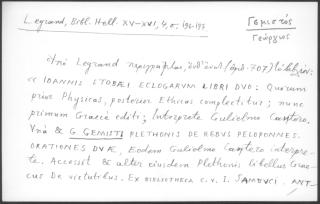 Legrand, Bibl. Hell. XV-XVI, 4, σ. 196-197
Γεμιστός
Γεώργιος
Legrand περιγράφεται, (ἀριθ. 707)
« IOANNIS STOBÆI ECLOGARUM LIBRI DUO: Quorum
prior Physicas, posterior Ethicas complectitur; nunc
primum Græcè editi; Interprete Gulielmo Cantero.
Unà & G. GEMISTI PLETHONIS DE REBUS PELOPONNES.
ORATIONES DUÆ, Eodem Gulielmo Cantero interpre-
te. Accessit & alter eiusdem Plethonis libellus Græ-
cus De virtutibus. EX BIBLIOTHECA C.V.I. SAMBUCI. ANT-